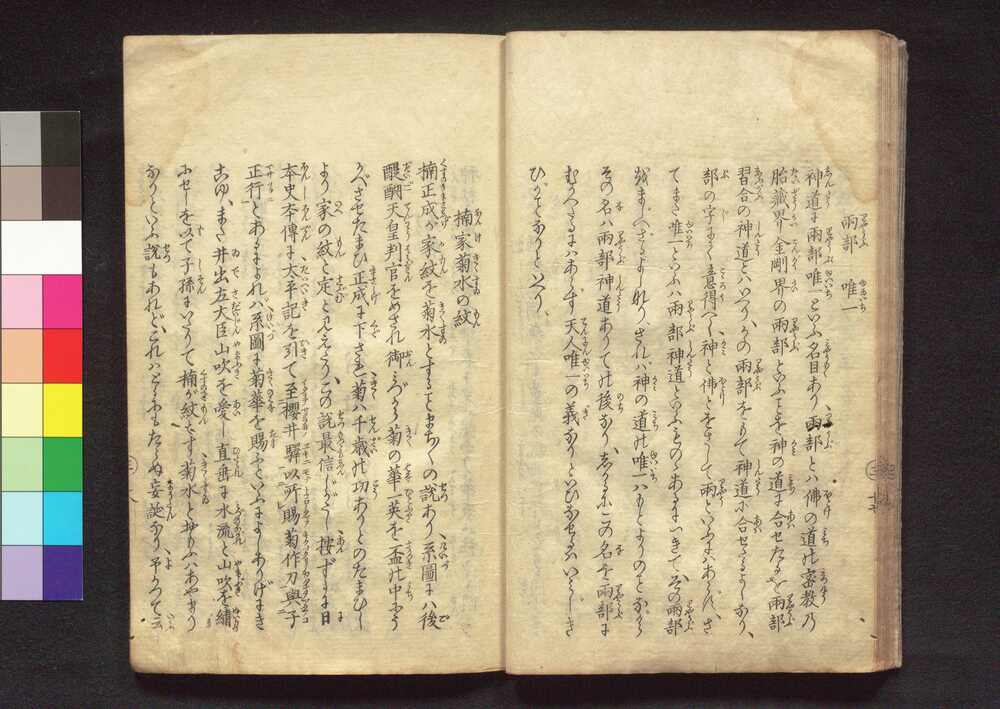 兩部 唯一
神道に兩部唯一といふ名目あり、兩部とハ佛の道の密教乃
胎藏界金剛界の兩部といふことを神の道に合せたるを兩部
習合の神道といへり、かの兩部をもて神道に合せたるよしなり、
部の字にて意得べし神と佛とをさして兩といふにハあらず、さ
てまた唯一といふハ兩部神道といふものゝあるにつきて、その兩部
をまじへざるよしなり、されバ神の道の唯一ハもとよりのことながら
その名ハ兩部神道ありての後なり、あらたにこの名を兩部に
むかへたるにハあらず天人唯一の義なりといひなせるハいみじき
ひがことなりといへり、
楠家菊水の紋
楠正成が家紋を菊水とすることまち〱の説あり、系圖にハ後
醍醐天皇判官をめされ御みづから菊の華一英を盃の中にう
かべさせたまひ正成に下され、菊ハ千歳の功ありとのたまひし
より家の紋と定とみえたり、この説最信じがたし、按ずるに日
本史本傳に太平記を引て至櫻井驛以所賜菊作刀與子
正行とあるによれバ系圖に菊華を賜ふといふによしありげにき
こゆ、また井出左大臣山吹を愛し直垂に水流と山吹を繍
にせしをみて子孫にいたりて楠が紋とす菊水と抄りハあやまり
なりといふ説もあれど、これハとるにもたらぬ妄誕なり